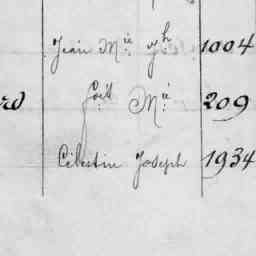 Jean Mie Jh 1004
rd fçois Mie 209
Célestin Joseph 1934